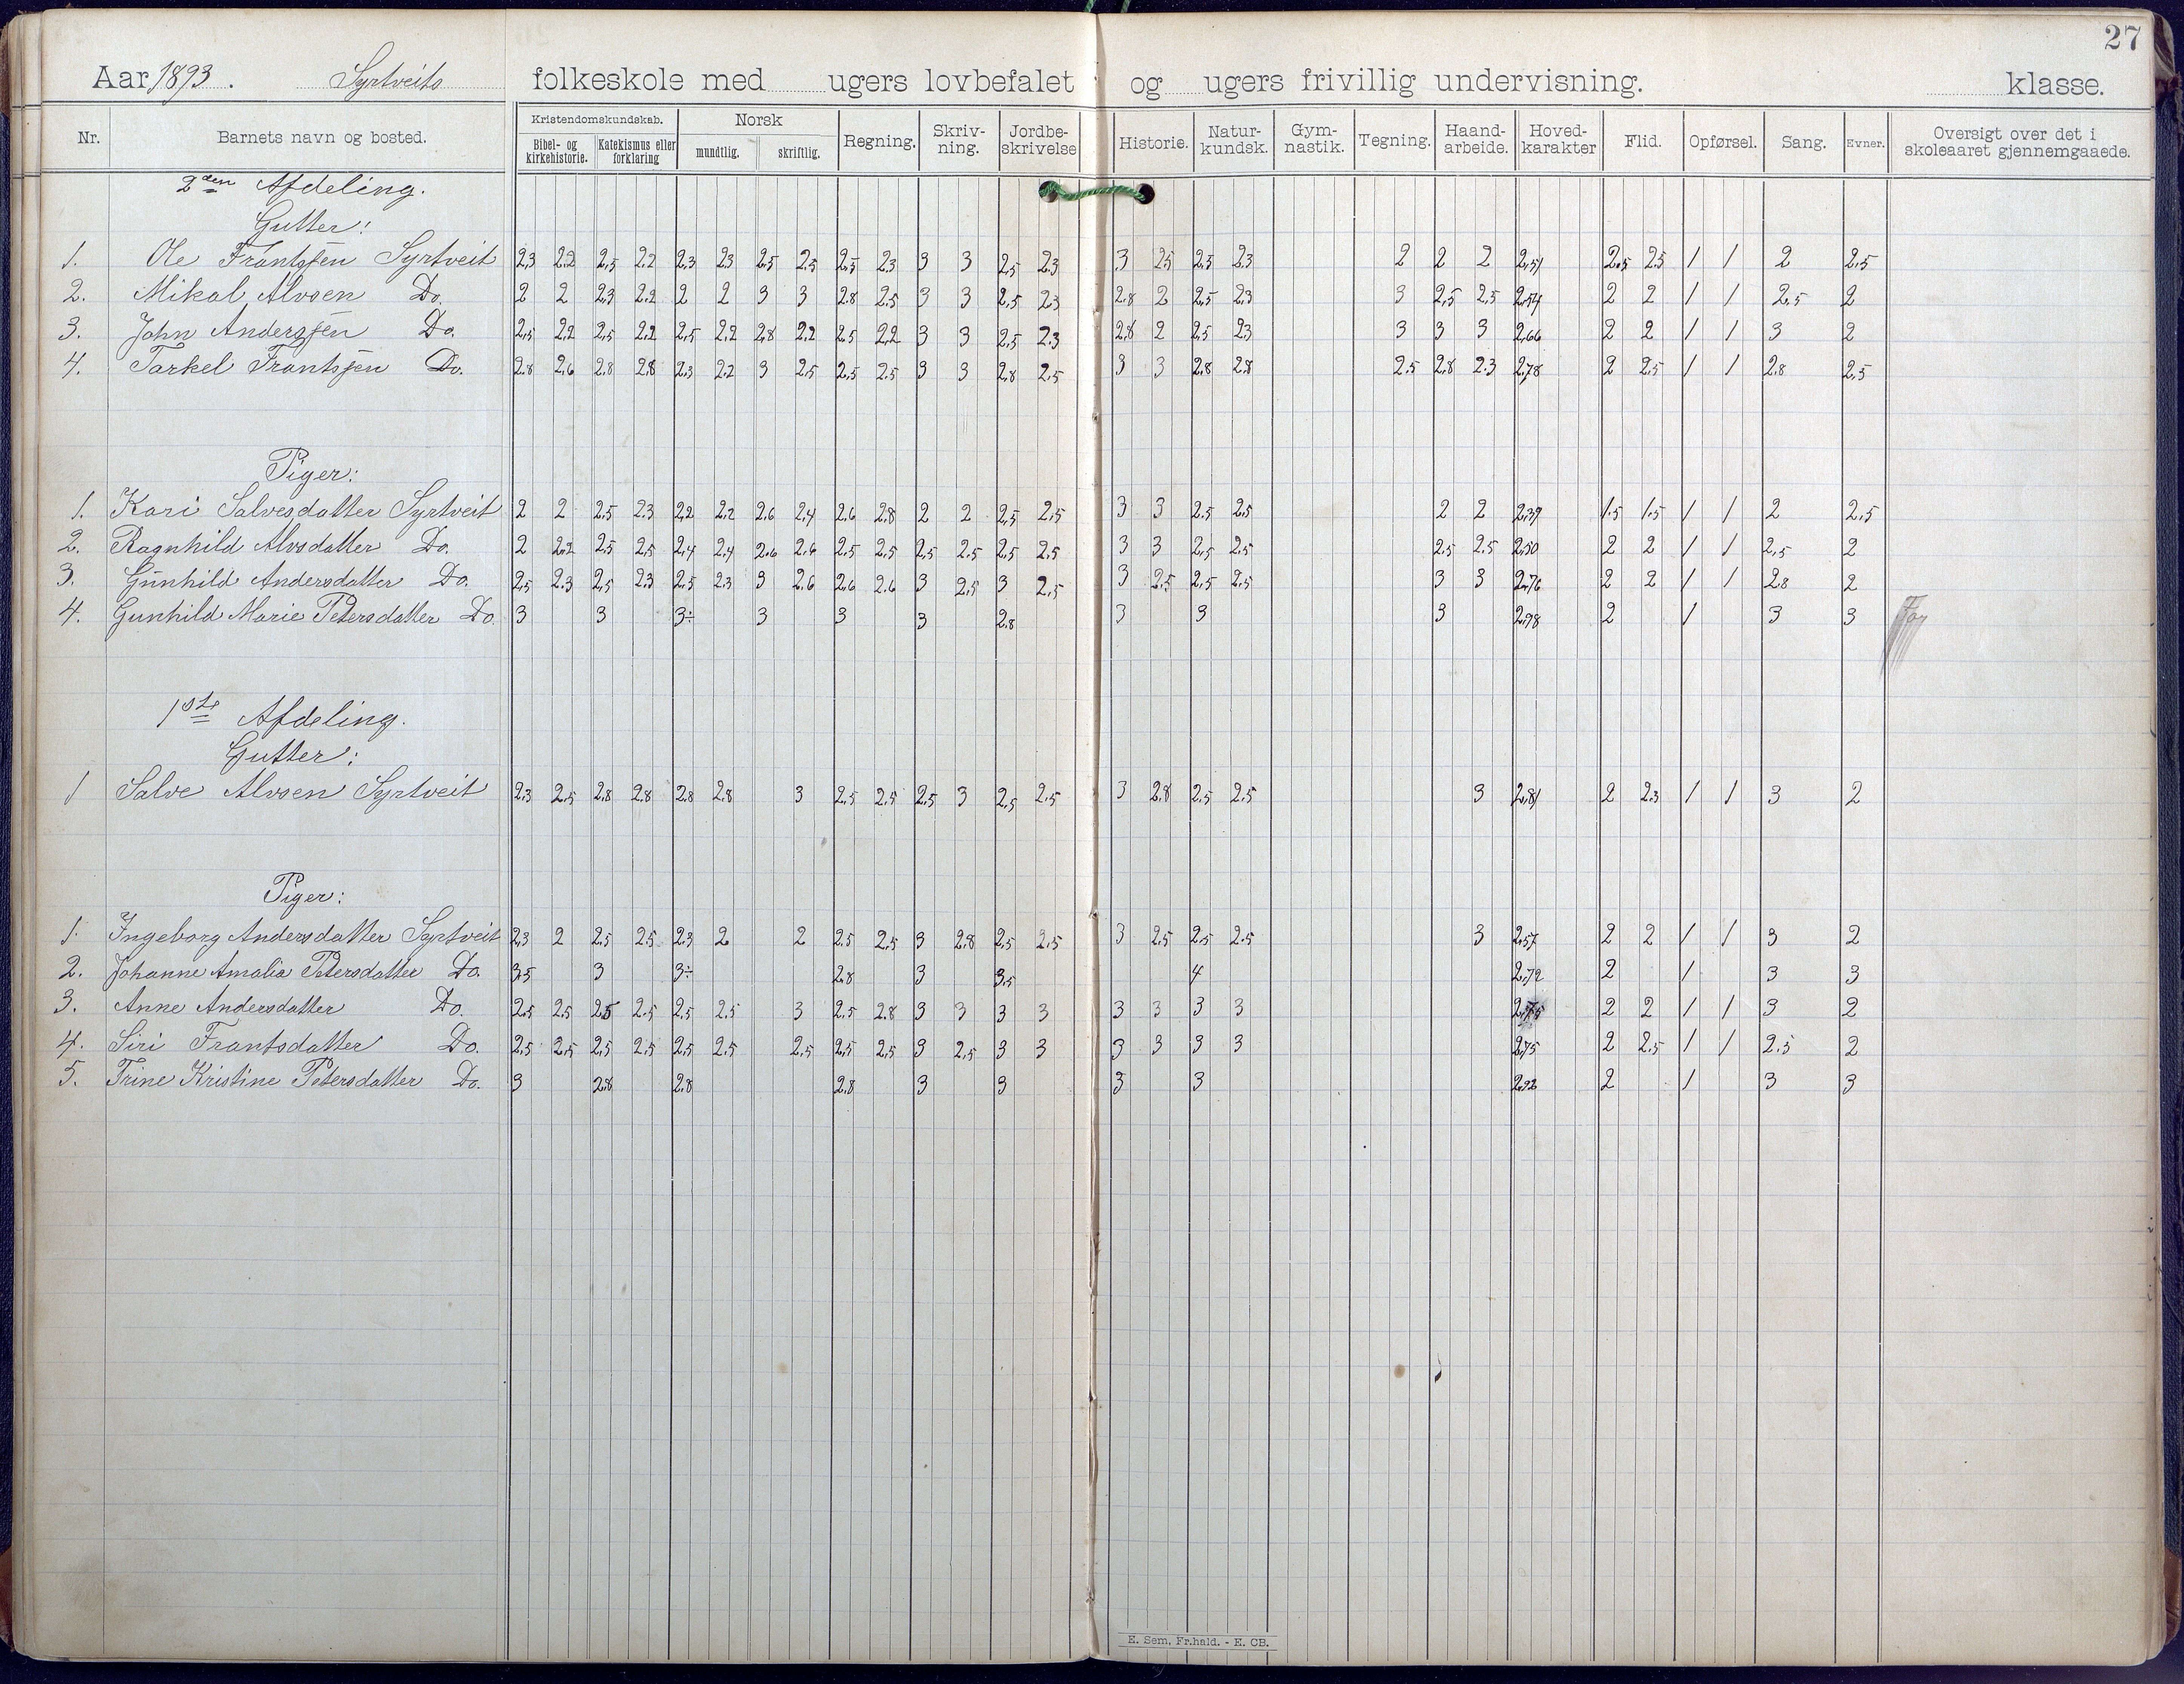 27
Aar 1893. Syrtveits folkeskole med ugers lovbefalet og ugers frivillig undervisning. klasse.
Nr. Barnets navn og bosted. Kristendomskundskab. Bibel- og kirkehistorie. Katekismus eller forklaring Norsk mundtlig. skriftlig. Regning. Skriv-ning. Jordbe-skrivelse Historie. Natur-kundsk. Gym-nastik. Tegning. Haand-arbeide. Hoved-karakter Flid. Opførsel. Sang. Evner. Oversigt over det i skoleaaret gjennemgaaede.
2den Afdeling.
Gutter:
1. Ole Frantsjen Syrtveit 2,3 2,2 2,5 2,2 2,3 2,3 2,5 2,5 2,5 2,3 3 3 2,5 2,3 3 2,5 2,5 2,3 2 2 2 2,51 2,5 2,5 1 1 2 2,5
2. Mikal Alvsen Do. 2 2 2,3 2,2 2 2 3 3 2,8 2,5 3 3 2,5 2,3 2,8 2 2,5 2,3 3 2,5 2,5 2,54 2 2 1 1 2,5 2
3. John Andersjen Do. 2,5 2,2 2,5 2,2 2,5 2,2 2,8 2,2 2,5 2,2 3 3 2,5 2,3 2,8 2 2,5 2,3 3 3 3 2,66 2 2 1 1 3 2
4. Tarkel Frantsjen Do. 2,8 2,6 2,8 2,8 2,3 2,2 3 2,5 2,5 2,5 3 3 2,8 2,5 3 3 2,8 2,8 2,5 2,8 2,3 2,78 2 2,5 1 1 2,8 2,5
Piger:
1. Kari Salvesdatter Syrtveit 2 2 2,5 2,3 2,2 2,2 2,6 2,4 2,6 2,8 2 2 2,5 2,5 3 3 2,5 2,5 2 2 2,39 1,5 1,5 1 1 2 2,5
2. Ragnhild Alvsdatter Do. 2 2,2 2,5 2,5 2,4 2,4 2,6 2,6 2,5 2,5 2,5 2,5 2,5 2,5 3 3 2,5 2,5 2,5 2,5 2,50 2 2 1 1 2,5 2
3. Gunhild Andersdatter Do. 2,5 2,3 2,5 2,3 2,5 2,3 3 2,6 2,6 2,6 3 2,5 3 2,5 3 2,5 2,5 2,5 3 3 2,76 2 2 1 1 2,8 2
4. Gunhild Marie Petersdatter Do. 3 3 3÷ 3 3 3 2,8 3 3 3 2,98 2 1 3 3
1ste Afdeling.
Gutter:
1 Salve Alvsen Syrtveit 2,3 2,5 2,8 2,8 2,8 2,8 3 2,5 2,5 2,5 3 2,5 2,5 3 2,8 2,5 2,5 3 2,81 2 2,3 1 1 3 2
Piger:
1. Ingeborg Andersdatter Syrtveit 2,3 2 2,5 2,5 2,3 2 2 2,5 2,5 3 2,8 2,5 2,5 3 2,5 2,5 2,5 3 2,57 2 2 1 1 3 2
2. Johanne Amalia Petersdatter Do. 3,5 3 3÷ 2,8 3 3,5 4 2,72 2 1 3 3
3. Anne Andersdatter Do. 2,5 2,5 2,5 2,5 2,5 2,5 3 2,5 2,8 3 3 3 3 3 3 3 3 2,75 2 2 1 1 3 2
4. Siri Frantsdatter Do. 2,5 2,5 2,5 2,5 2,5 2,5 2,5 2,5 2,5 3 2,5 3 3 3 3 3 3 2,75 2 2,5 1 1 2,5 2
5. Trine Kristine Petersdatter Do. 3 2,8 2,8 2,8 3 3 3 3 2,92 2 1 3 3
E. Sem, Fr.hald. - E. CB.